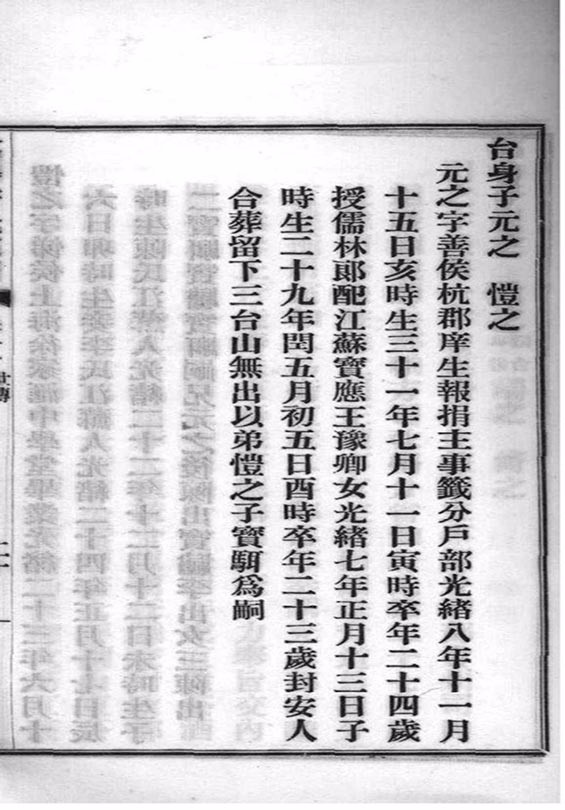 台身子元之　愷之
元之字善侯杭郡庠生報捐主事籤分戶部光緒八年十一月
十五日亥時生三十一年七月十一日寅時卒年二十四歲
授儒林郎配江蘇寶應王豫卿女光緒七年正月十三日子
時生二十九年閏五月初五日酉時卒年二十三歲封安人
合葬留下三台山無出以弟愷之子寶駬為嗣